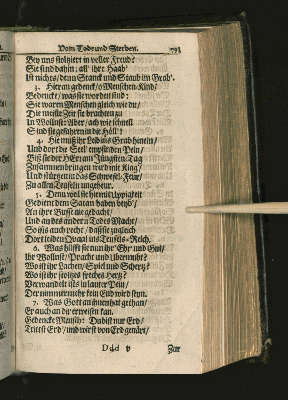 Vom Tode und Sterben. 793
Bey uns stoltzirt in voller Freud?
Sie sind dahin; all' ihre Haab'
Ist nichts / denn Stanck und Staub im Grab'.
3. Hieran gedenck / o Menschen-Kind /
Bedenck / was sie worden sind:
Sie waren Menschen gleich wie du /
Die meiste Zeit sie brachten zu
In Wollust: Aber / ach wie schnell
Sind sie gefahren in die Höll'!
4. Hie muß ihr Leib ins Grab hinein /
Und dort die Seel' empfinden Pein /
Biß sie der HErr am Jüngsten Tag
Zusammen bringen wird mit Klag'
Und stürtzen in das Schwefel-Feur /
Zu allen Teufeln ungeheur.
5. Denn weil sie hie mit Uppigkeit
Gedient dem Satan haben beyd' /
An ihre Busse nie gedacht /
Und an des andern Todes Macht /
So ists auch recht / daß sie zugleich
Dort leiden Quaal ins Teufels-Reich.
6. Was hilfft sie nun ihr' Ehr und Gut /
Ihr Wollust / Pracht und Ubermuht?
Wo ist ihr Lachen / Spiel und Schertz?
Wo ist ihr stoltzes freches Hertz?
Verwandelt ists in lauter Pein /
Der nimmermehr kein End wird seyn.
7. Was Gott an ihnen hat gethan /
Er auch an dir erweisen kan.
Gedencke Mensch: Du bist nur Erd /
Trittst Erd / und wirst von Erd genährt /
Ddd Zur